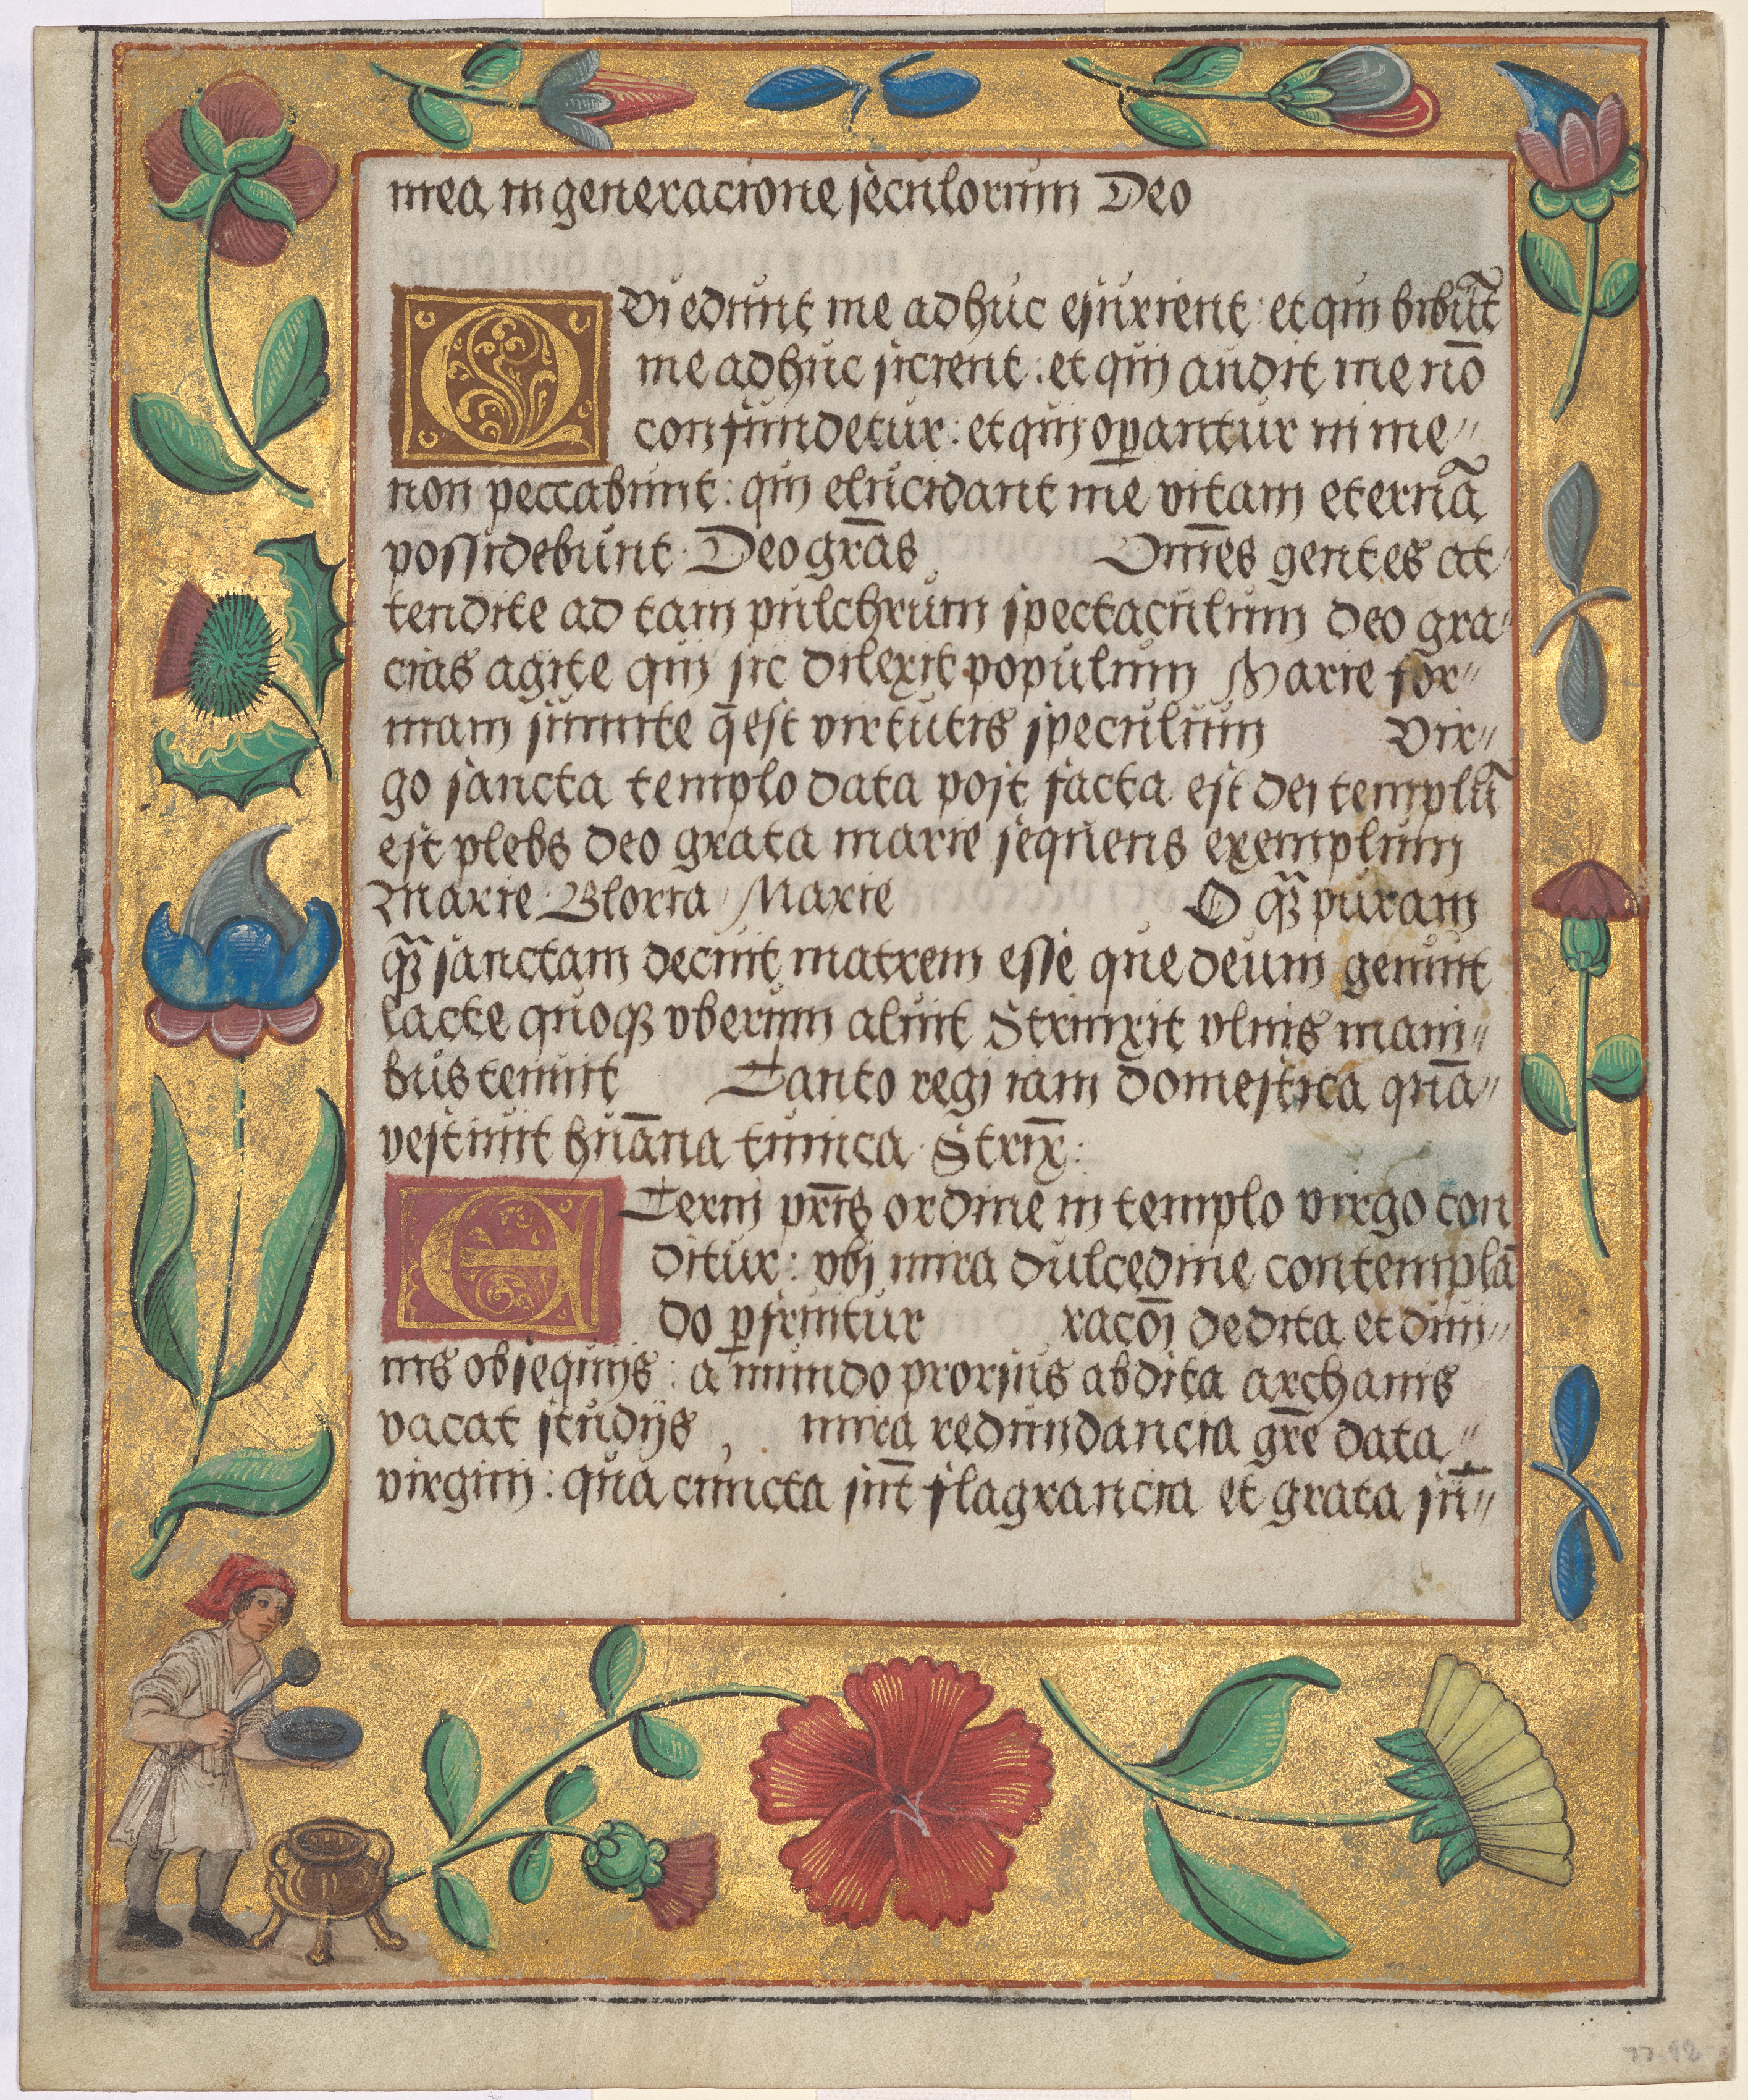 mea in generacione seculorum Deo
Qui edunt me adhuc esurient: et qui bibūt
me adhuc sicient: et qui audit me nō
confundetur: et qui oꝑantur in me〃
non peccabunt: qui elucidant me vitam eternā
possidebunt. Deo grās Om̄es gentes at〃
tendite ad tam pulchrum spectaculum deo gra〃
cias agite qui sic dilexit populum Marie for〃
mam sumite q̄ est virtutis speculum Vir〃
go sancta templo data post facta est dei templū
est plebs deo grata marie sequens exemplum
Marie Gloria Marie O qꝫ̄ puram
qꝫ̄ sanctam decuit matrem esse que deum genuit
lacte quoqꝫ vberum aluit Strinxit vlnis mani〃
bus tenuit Tanto regi iam domestica quā〃
vestiuit huāna tunica Strinx̄:
Eterni pr̄is ordine in templo virgo con
ditur: vbi mira dulcedine contemplā
do ꝑfruitur racōi dedita et diui〃
nis obsequijs: a mundo prorsus abdita archanis
vacat studijs, mira redundancia gr̄e data〃
virgini: qua cuncta sūt flagrancia et grata sū〃
77-98